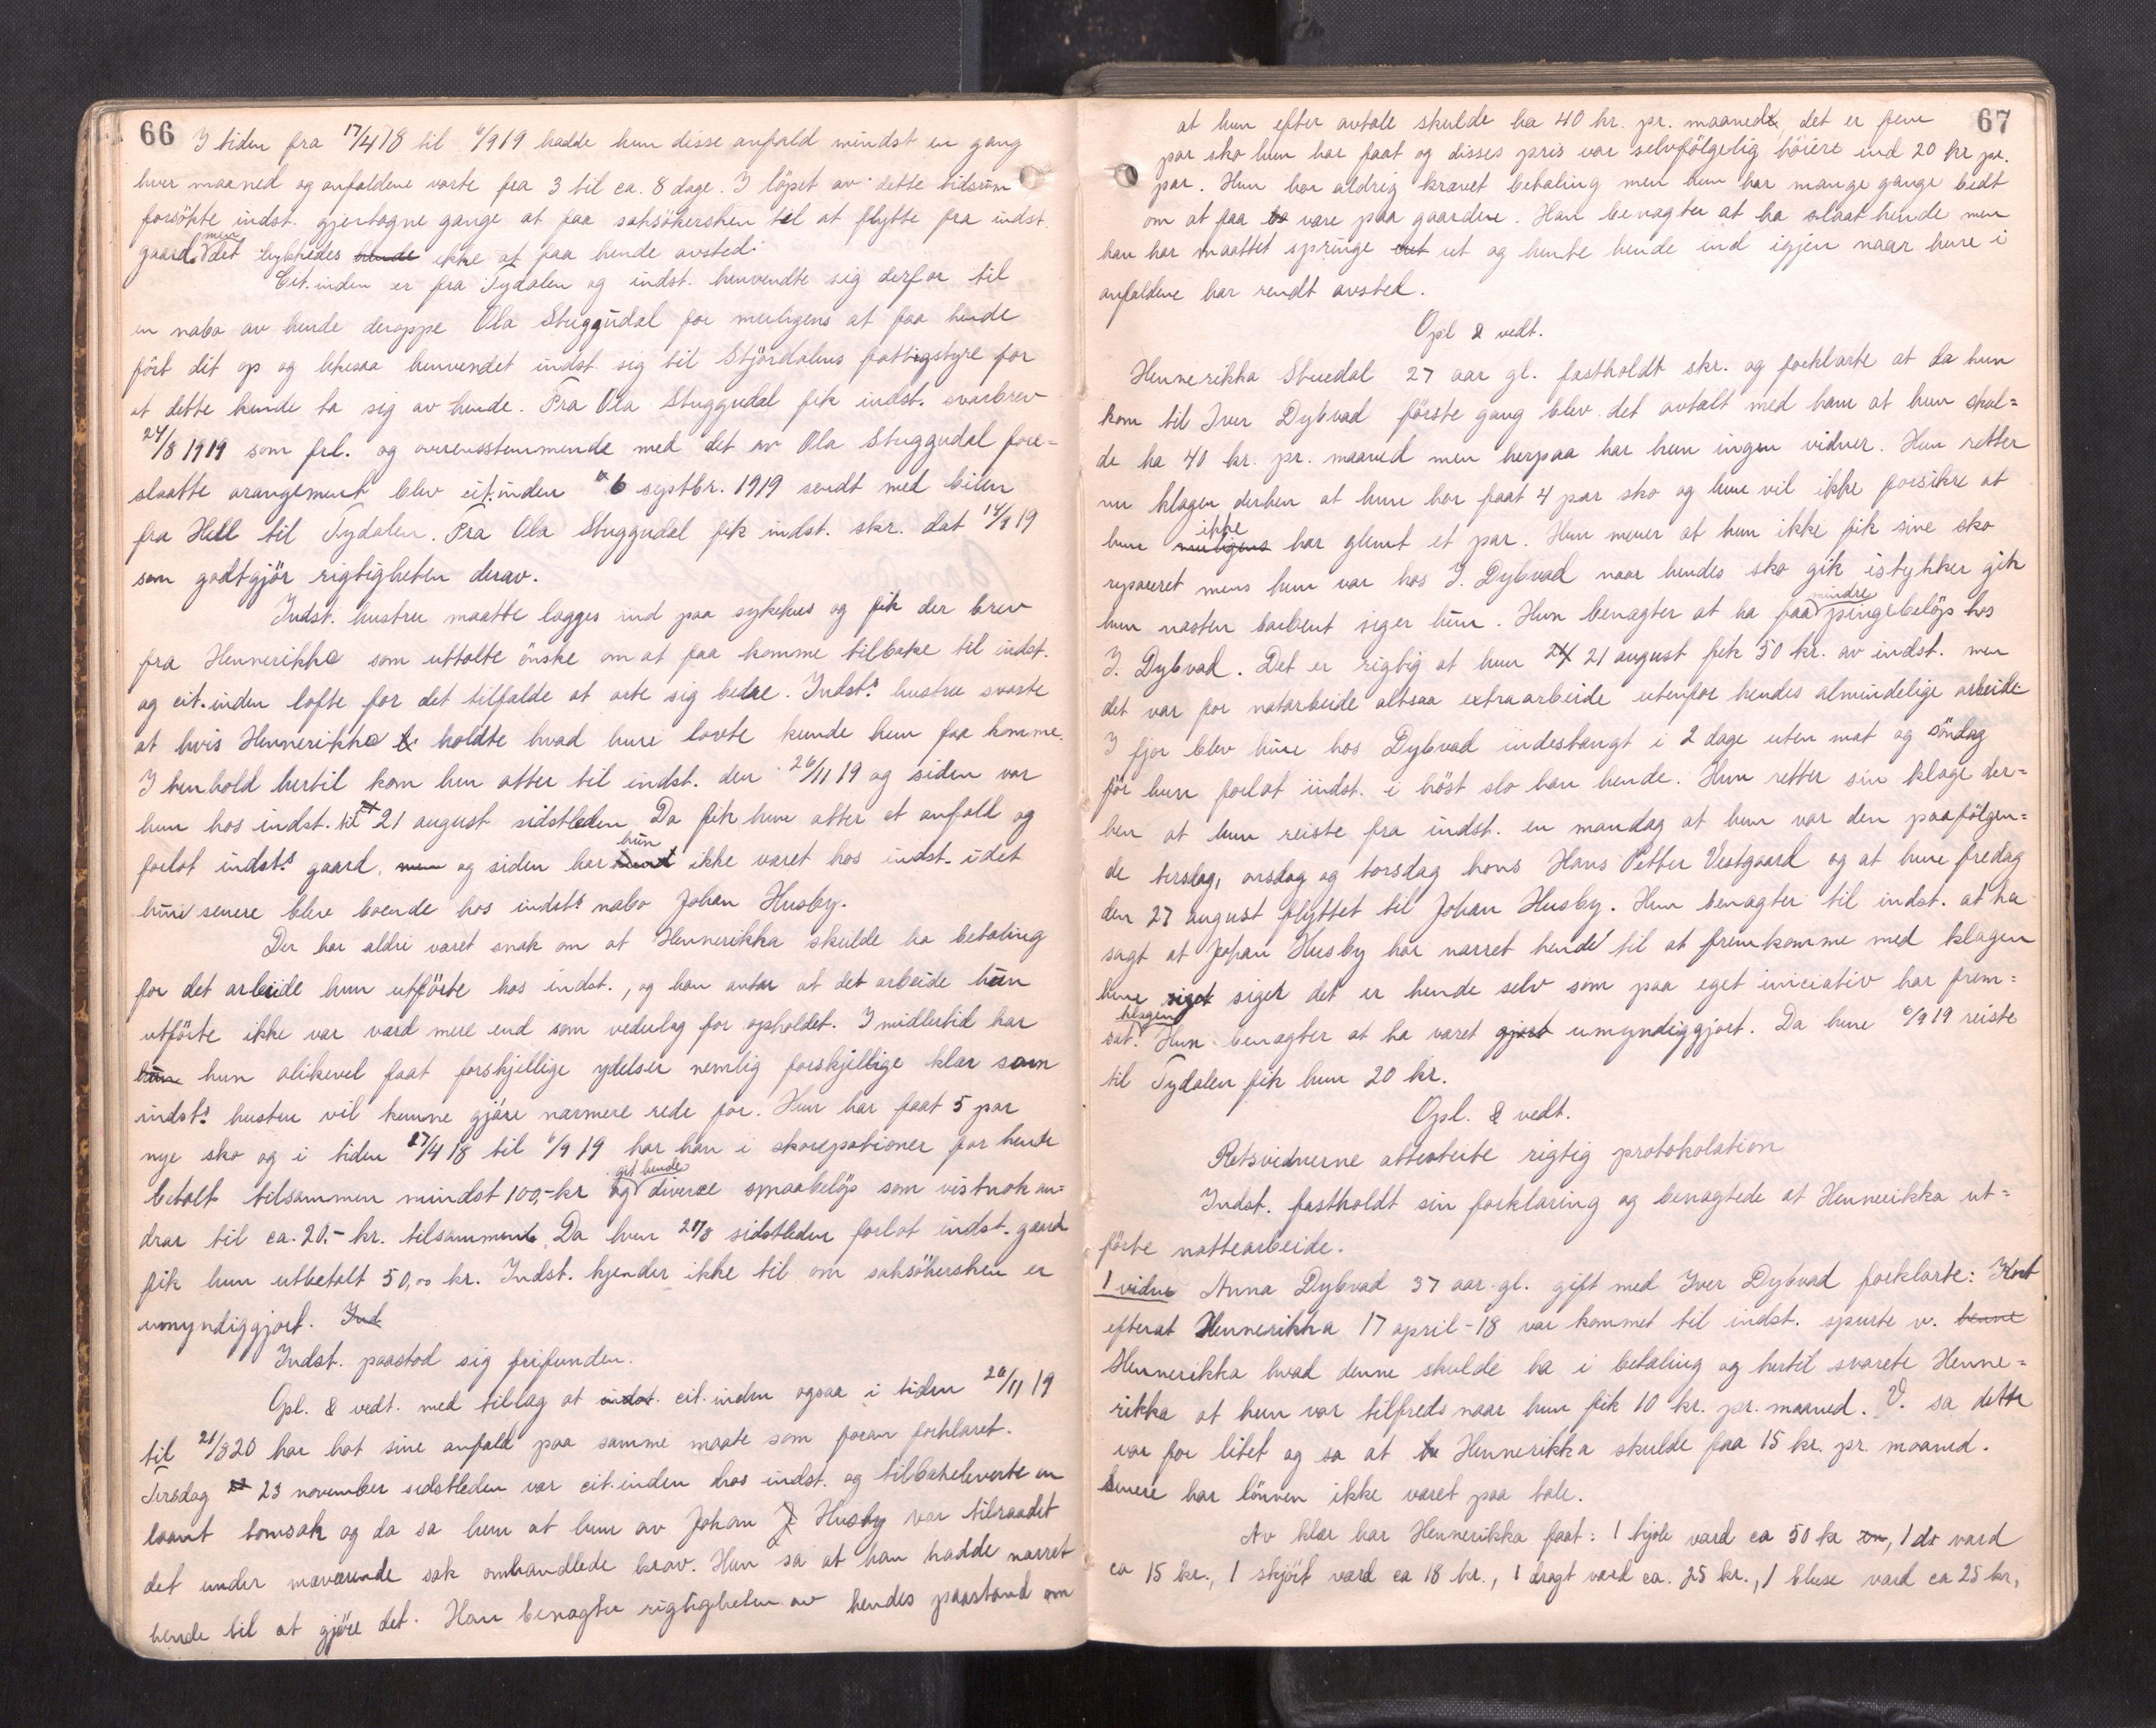 66
I tiden fra 17/4 18 til 6/9 19 hadde hun disse anfald mindst en gang
hver maaned og anfaldene varte fra 3 til ca. 8 dage. I löpet av dette tidsrum
forsökte indst. gjentagne gange at faa saksökersken til at flytte fra indst.
gaard, men det lykkedes hende ikke at faa hende avsted.
Cit.inden er fra Tydalen og indst. henvendte sig derfor til
en nabo av hende deroppe Ola Stuggudal for muligens at faa hende
fört dit op og likesaa henvendet indst. sig til Stjördalens fattigstyre for
at dette kunde ta sig av hende. Fra Ola Stuggudal fik indst. svarbrev
24/8 1919 som frl. og overensstemmende med det av Ola Stuggudal fore=
slaatte arangement blev cit.inden 6 septbr. 1919 sendt med bilen
fra Hell til Tydalen. Fra Ola Stuggudal fik indst. skr. dat 14/9 19
som godtgjör rigtigheten derav.
Indst. hustru maatte lægges ind paa sykehus og fik der brev
fra Hennerikke som uttalte önske om at faa komme tilbake til indst.
og cit.inden lofte for det tilfælde at arte sig bedre. Indst.s hustru svarte
at hvis Hennerikke holdte hvad hun lovte kunde hun faa komme.
I henhold hertil kom hun atter til indst. den 26/11 19 og siden var
hun hos indst. til 21 august sidstleden. Da fik hun atter et anfald og
forlot indst.s gaard, men og siden har hun ikke været hos indst. idet
hun senere blev boende hos indst.s nabo Johan Husby.
Der har aldri været snak om at Hennerikka skulde ha betaling
for det arbeide hun utförte hos indst., og han antar at det arbeide hun
utförte ikke var værd mere end som vederlag for opholdet. Imidlertid har
hun hun alikevel faat forskjellige ydelser nemlig forskjellige klær som
indst.s hustru vil kunne gjöre nærmere rede for. Hun har faat 5 par
nye sko og i tiden 17/4 18 til 6/9 19 har han i skorepationer for hende
betalt tilsammen mindst 100,- kr og git hende diverse smaabelöp som vistnok an=
drar til ca. 20.- kr. tilsammen. Da hun 21/8 sidstleden forlot indst. gaard
fik hun utbetalt 50,00 kr. Indst. kjender ikke til om saksökersken er
umyndiggjort. Ind
Indst. paastod sig frifunden.
Opl. & vedt. med tillæg at indst. cit.inden ogsaa i tiden 26/11 19
til 21/8 20 har hat sine anfald paa samme maate som foran forklaret.
Tirsdag 23 november sidstleden var cit.inden hos indst. og tilbakeleverte en
laant tomsæk og da sa hun at hun av Johan J. Husby var tilraadet
det under nærværende sak omhandlede krav. Hun sa at han hadde narret
hende til at gjöre det. Han benægter rigtigheten av hendes paastand om
67
at hun efter avtale skulde ha 40 kr. pr. maaned, det er fem
par sko hun har faat og disses pris var selvfölgelig höiere end 20 kr pr.
par. Hun har aldrig krævet betaling men hun har mange gange bedt
om at faa være paa gaarden. Han benægter at ha slaat hende men
han har maattet springe ut og hente hende ind igjen naar hun i
anfaldene har rendt avsted.
Opl & vedt.
Hennerikka Stuedal 27 aar gl. fastholdt skr. og forklarte at da hun
kom til Iver Dybvad förste gang blev det avtalt med ham at hun skul=
de ha 40 kr. pr. maaned men herpaa har hun ingen vidner. Hun retter
nu klagen derhen at hun har faat 4 par sko og hun vil ikke forsikre at
hun muligens ikke har glemt et par. Hun mener at hun ikke fik sine sko
reparert mens hun var hos I. Dybvad naar hendes sko gik istykker gik
hun næsten barbent siger hun. Hun benægter at ha faat mindre pengebelöp hos
I. Dybvad. Det er rigtig at hun 21 august fik 50 kr. av indst. men
det var for natarbeide altsaa extraarbeide utenfor hendes almindelige arbeide
I fjor blev hun hos Dybvad indestængt i 2 dage uten mat og söndag
för hun forlot indst. i höst slo han hende. Hun retter sin klage der=
hen at hun reiste fra indst. en mandag at hun var den paafölgen=
de tirsdag, onsdag og torsdag hons Hans Petter Vestgaard og at hun fredag
den 27 august flyttet til Johan Husby. Hun benægter til indst. at ha
sagt at Johan Husby har narret hende til at fremkomme med klagen
hun siget siger det er hende selv som paa eget iniciativ har frem=
sat klagen. Hun benægter at ha været gjort umyndiggjort. Da hun 6/9 19 reiste
til Tydalen fik hun 20 kr.
Opl. & vedt.
Retsvidnerne attesterte rigtig protokolation
Indst. fastholdt sin forklaring og benægtede at Hennerikka ut=
förte nattearbeide.
1 vidne Anna Dybvad 37 aar gl. gift med Iver Dybvad forklarte: Kort
efterat Hennerikka 17 april-18 var kommet til indst. spurte v. henne
Hennerikka hvad denne skulde ha i betaling og hertil svarete Henne=
rikka at hun var tilfreds naar hun fik 10 kr. pr. maaned. V. sa dette
var for litet og sa at Hennerikka skulde faa 15 kr. pr. maaned.
Senere har lönnen ikke været paa tale.
Av klær har Hennerikka faat: 1 kjole værd ca 50 kr, 1 do værd
ca 15 kr., 1 skjört værd ca 18 kr., 1 dragt værd ca. 25 kr., 1 bluse værd ca 25 kr,